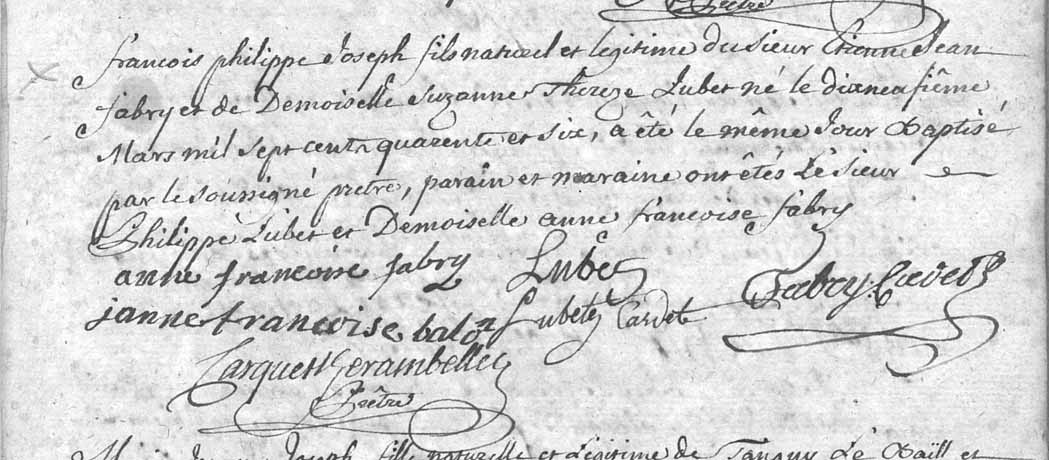 Prêtre
francois philippe Joseph fils naturel et legitime du sieur Etienne Jean
fabry et de Demoiselle Suzanne Thereze Lubet né le dixneufiême
Mars mil sept cent quarente et six, a êté le même Jour Baptisé
par le soussigné prêtre, parain et maraine ont êtés Le sieur
Philippe Lubet et Demoiselle anne francoise fabry
anne francoise fabry Lubet
janne francoise Lubet Fabry
Prêtre
Joseph fille naturelle et Légitime de Tanguy Le et